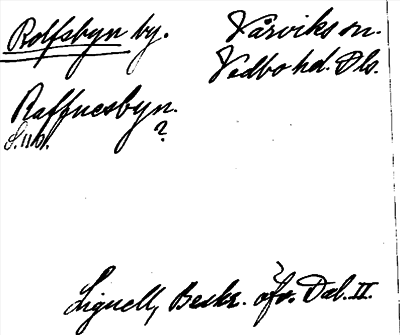 Rolfsbyn by. Vårviks sn.
Vedbo hd. Dls.
Raffnesbyn.
S. 110. ?
Lignell, Beskr. öfv. Dal. II.